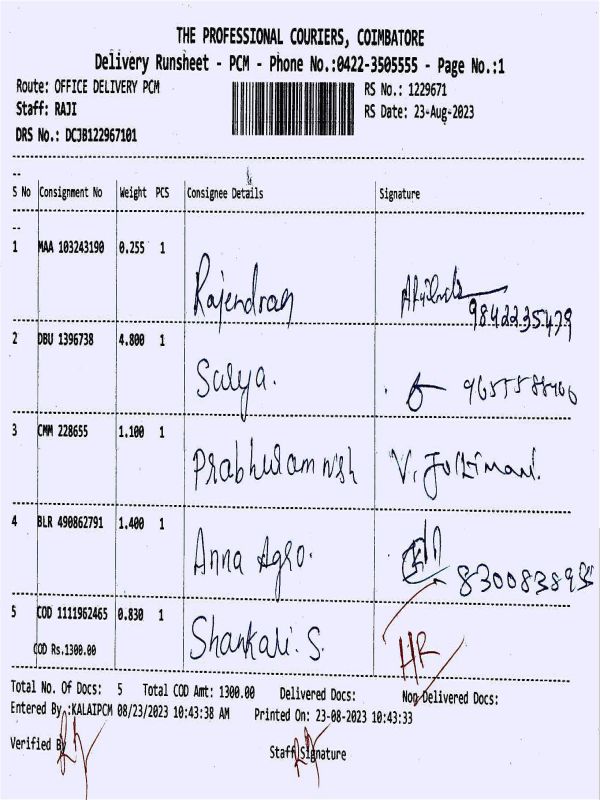 THE PROFESSIONAL COURIERS, COIMBATORE
Delivery Runsheet - PCM - Phone No.:0422-3505555 - Page No.:1
Route: OFFICE DELIVERY PCM RS No.: 1229671
Staff: RAJI RS Date: 23-Aug-2023
DRS No.: DCJB122967101
S No Consignment No Weight PCS Consignee Details Signature
1 MAA 103243190 0.255 1 Rajendran
9842235479
2 DBU 1396738 4.800 1 Salya.
3 CMM 228655 1.100 1
4 BLR 490862791 1.400 1 Anna Agro.
5 COD 1111962465 0.830 1 Shankali. S. HR
COD Rs.1300.00
Total No. Of Docs: 5 Total COD Amt: 1300.00 Delivered Docs: Non Delivered Docs:
Entered By :KALAIPCM 08/23/2023 10:43:38 AM Printed On: 23-08-2023 10:43:33
Verified By Staff Signature